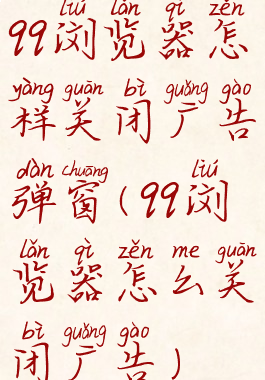 liú lǎn qì zěn
99浏览器怎
yàng guān bì guǎng gào
样关闭广告
dàn chuāng liú
弹窗(99浏
lǎn qì zěn me guān
览器怎么关
bì guǎng gào
闭广告)